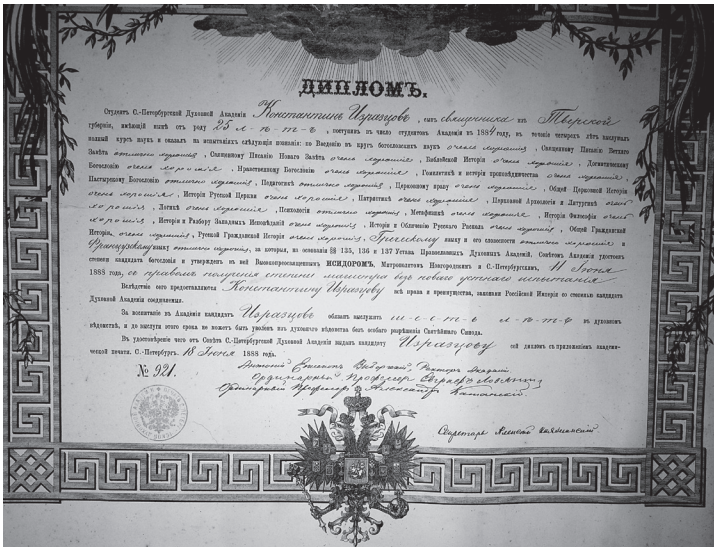 ДИПЛОМЪ.
Студентъ С.-Петербургской Духовной Академіи Константинъ Изразцовъ, сынъ священника изъ Тверской
губерніи, имѣющій нынѣ отъ роду 25 л-ѣ-т-ъ, поступивъ въ число студентовъ Академіи въ 1884 году, въ теченіе четырехъ лѣтъ выслушалъ
полный курсъ наукъ и оказалъ на испытаніяхъ слѣдующія познанія: по Введенію въ кругъ богословскихъ наукъ очень хорошія, Священному Писанію Ветхаго
Завѣта отлично хорошія, Священному Писанію Новаго Завѣта очень хорошія, Библейской Исторіи очень хорошія, Догматическому
Богословію очень хорошія, Нравственному Богословію очень хорошія, Гомилетикѣ и исторіи проповѣдничества очень хорошія,
Пастырскому Богословію отлично хорошія, Педагогикѣ отлично хорошія, Церковному праву очень хорошія, Общей Церковной Исторіи
очень хорошія, Исторіи Русской Церкви очень хорошія, Патристикѣ очень хорошія, Церковной Археологіи и Литургикѣ очень
хорошія, Логикѣ очень хорошія, Психологіи отлично хорошія, Метафизикѣ очень хорошія, Исторіи Философіи очень
хорошія, Исторіи и Разбору Западныхъ Исповѣданій очень хорошія, Исторіи и Обличенію Русскаго Раскола очень хорошія, Общей Гражданской
Исторіи очень хорошія, Русской Гражданской Исторіи очень хорошія, Греческому языку и его словесности отлично хорошія и
Французскому языку отлично хорошія, за которыя, на основаніи §§ 135, 136 и 137 Устава Православныхъ Духовныхъ Академій, Совѣтомъ Академіи удостоенъ
степени кандидата богословія и утвержденъ въ ней Высокопреосвященнымъ ИСИДОРОМЪ, Митрополитомъ Новгородскимъ и С.-Петербургскимъ, 11 Іюня
1888 года, съ правомъ полученія степени магистра безъ новаго устнаго испытанія
Вслѣдствіе сего предоставляются Константину Изразцову всѣ права и преимущества, законами Россійской Имперіи со степенью кандидата
Духовной Академіи соединяемыя.
За воспитаніе въ Академіи кандидатъ Изразцовъ обязанъ выслужить ш-е-с-т-ь л-ѣ-т-ъ въ духовномъ
вѣдомствѣ, и до выслуги этого срока не можетъ быть уволенъ изъ духовнаго вѣдомства безъ особаго разрѣшенія Святѣйшаго Синода.
Въ удостовѣреніе чего отъ Совѣта С.-Петербургской Духовной Академіи выданъ кандидату Изразцову сей дипломъ съ приложеніемъ академи-
ческой печати. С.-Петербургъ. 18 Іюня 1888 года.
Антоній Епископъ Выборгскій, Ректоръ Академіи
№ 921.
Ординарный Профессоръ Евграфъ Ловягинъ
Ординарный Профессоръ Александръ Катанскій.
Секретарь Алексѣй